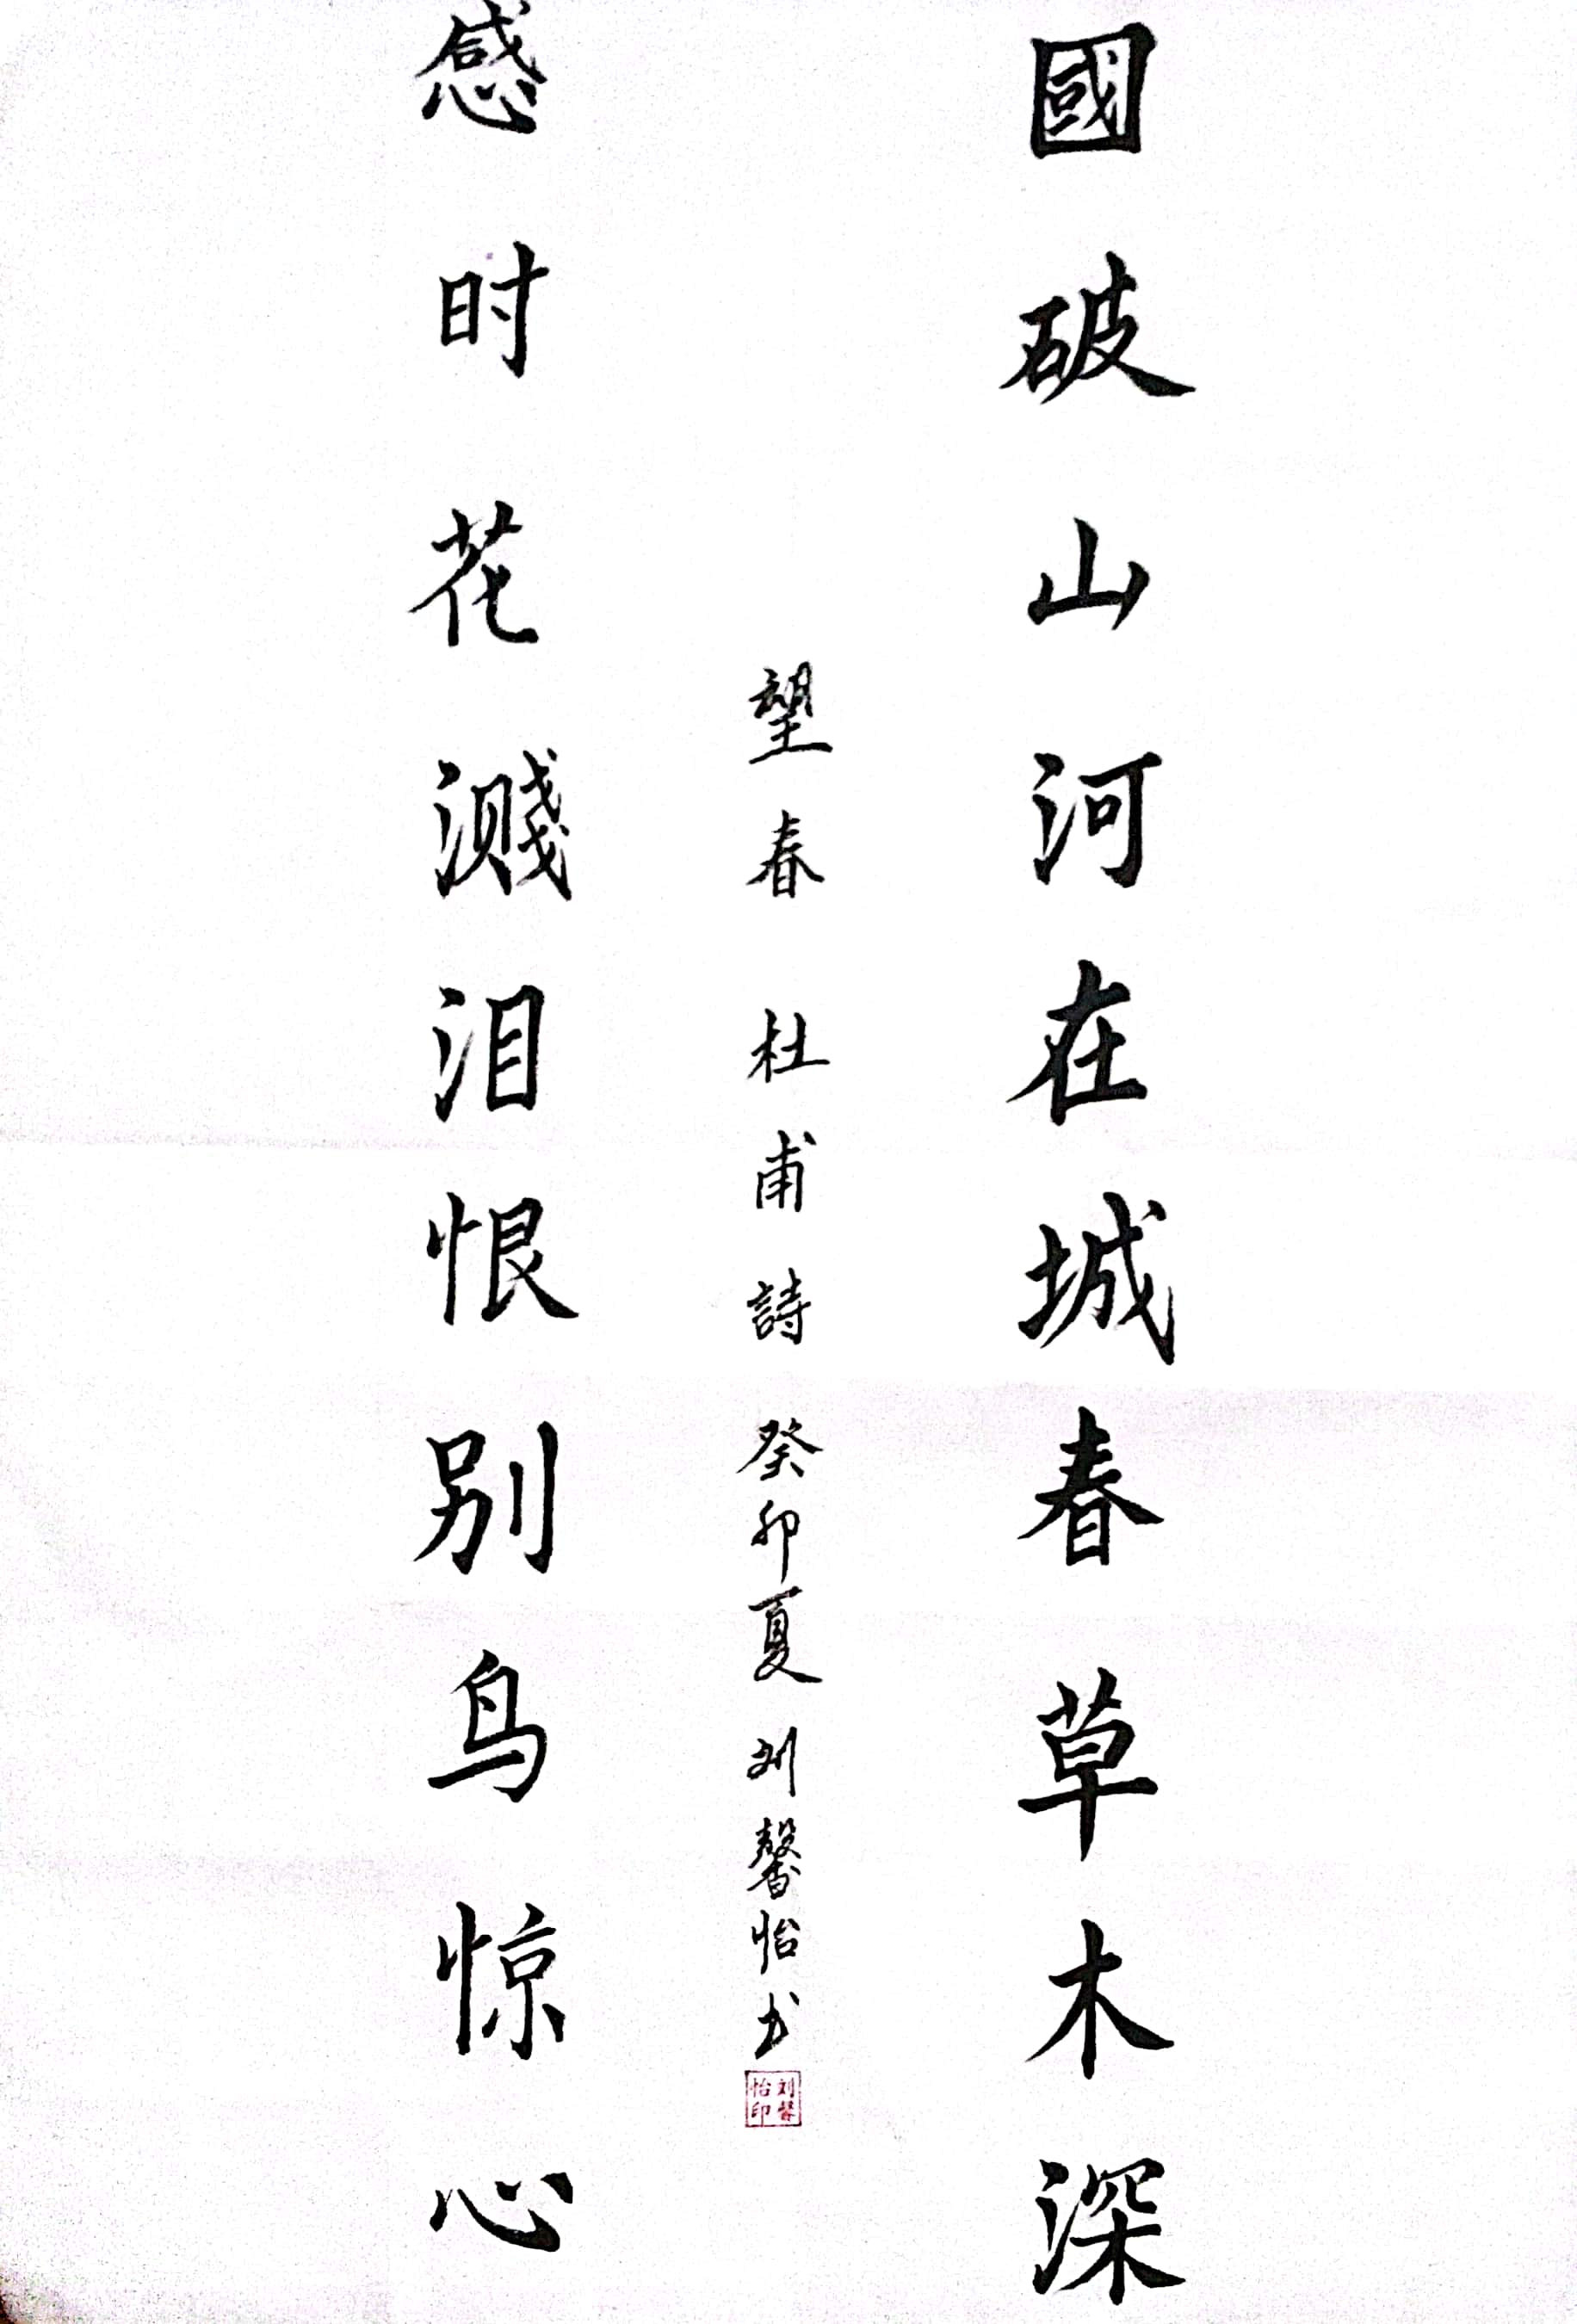 國破山河在城春草木深
望春 杜甫詩 癸卯夏 刘馨怡书
感时花溅泪恨别鸟惊心
刘馨怡印